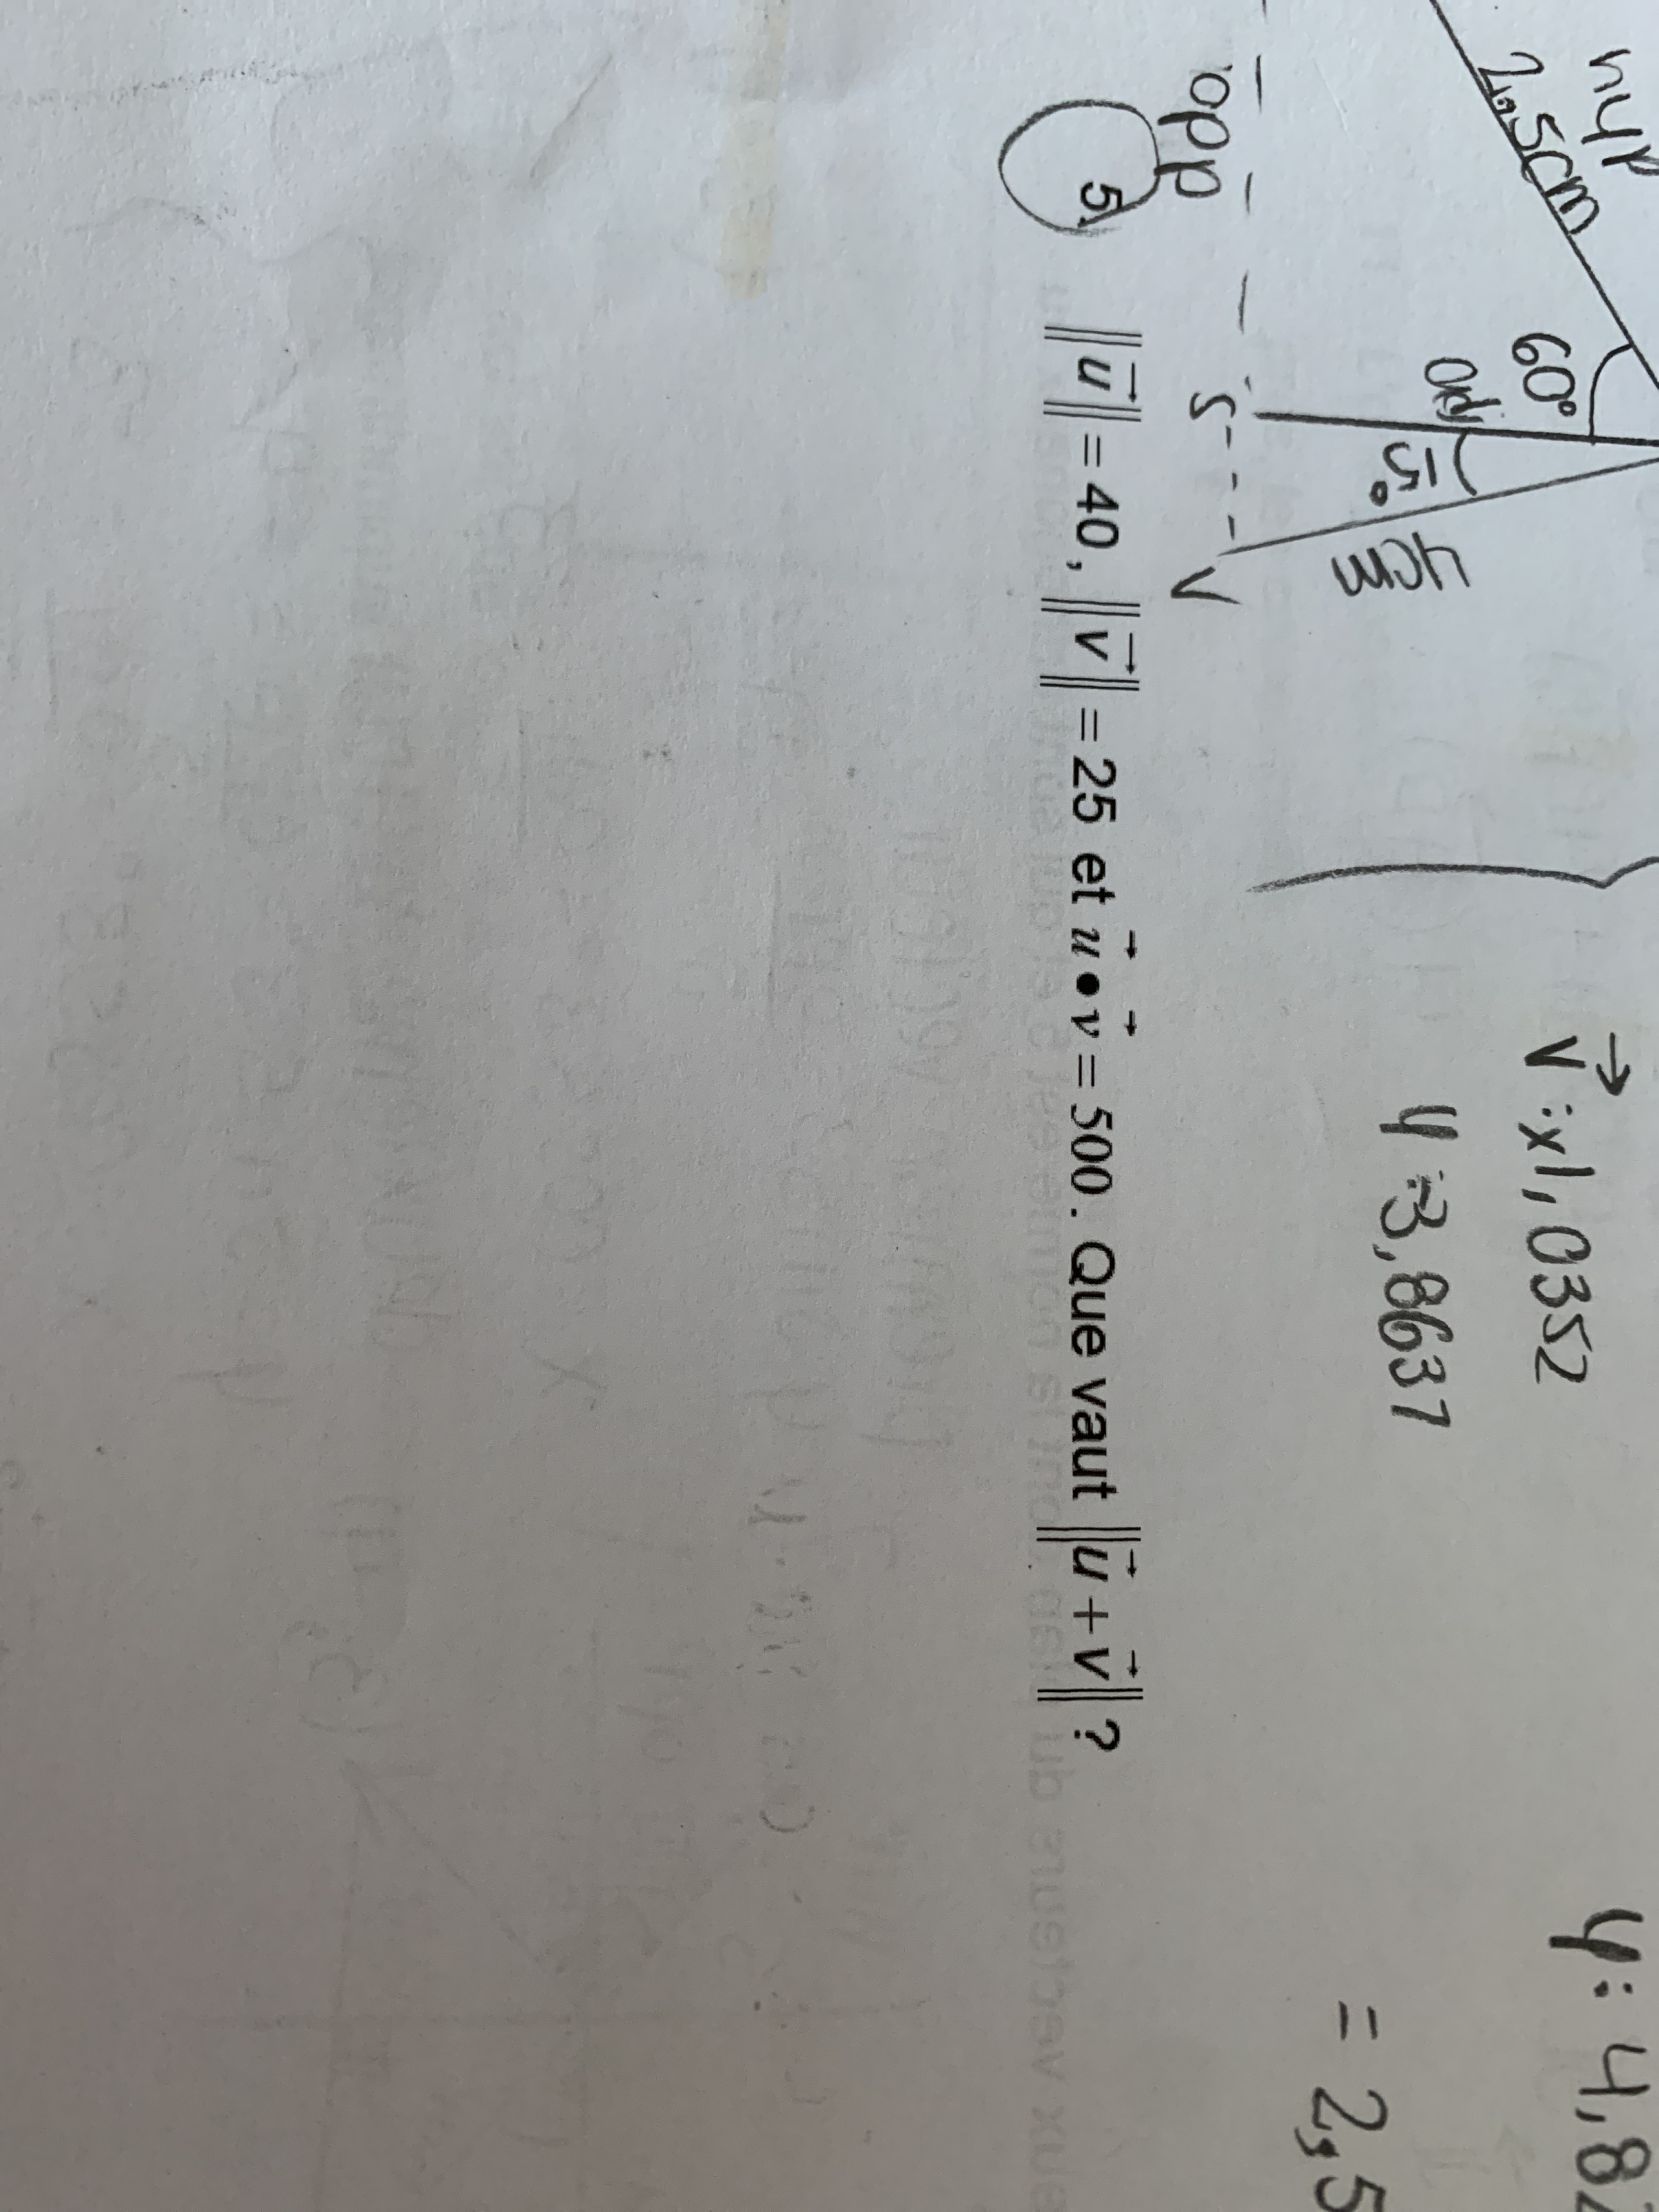 hyp
2,5cm
60°
opp
15°
4cm
opp
S
V
v⃗ : x 1,0352
y : 3,8637
= 2,5
5. ‖u⃗‖ = 40, ‖v⃗‖ = 25 et u⃗ • v⃗ = 500. Que vaut ‖u⃗ + v⃗‖ ?